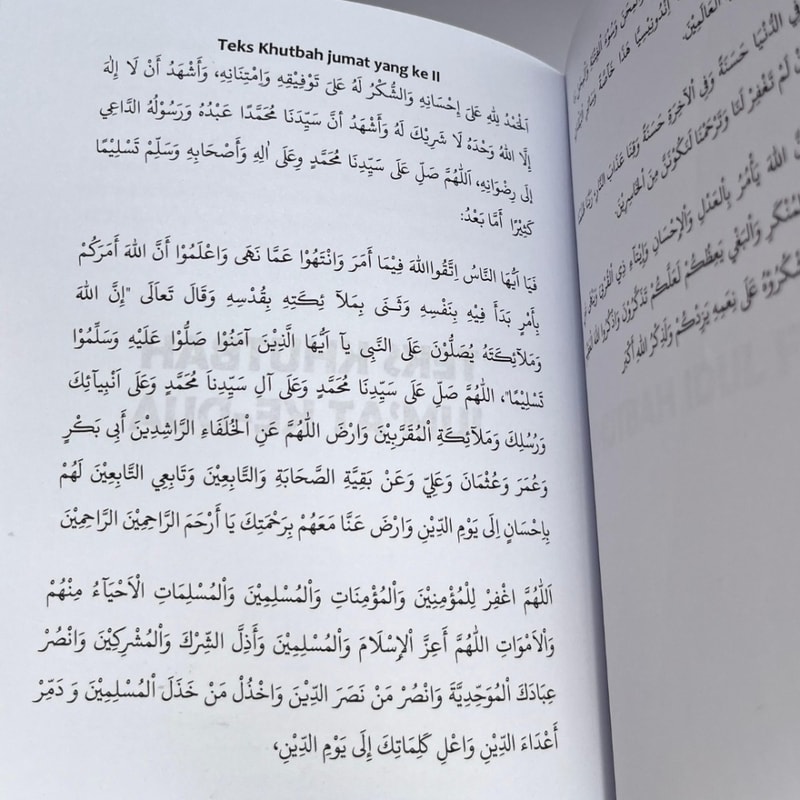 Teks Khutbah jumat yang ke II
اَلْحَمْدُ لِلّٰهِ عَلىَ إِحْسَانِهِ وَالشُّكْرُ لَهُ عَلىَ تَوْفِيْقِهِ وَاِمْتِنَانِهِ، وَأَشْهَدُ أَنْ لَا إِلٰهَ
إِلَّا اللهُ وَحْدَهُ لَا شَرِيْكَ لَهُ وَأَشْهَدُ أنَّ سَيِّدَنَا مُحَمَّدًا عَبْدُهُ وَرَسُوْلُهُ الدَّاعِي
إِلى رِضْوَانِهِ، اَللّٰهُمَّ صَلِّ عَلَى سَيِّدِنَا مُحَمَّدٍ وِعَلَى اٰلِهِ وَأَصْحَابِهِ وَسَلِّمْ تَسْلِيْمًا
كَثِيْرًا أَمَّا بَعْدُ:
فَيَا اَيُّهَا النَّاسُ اِتَّقُوااللهَ فِيْمَا أَمَرَ وَانْتَهُوْا عَمَّا نَهَى وَاعْلَمُوْا أَنَّ اللهَ أَمَرَكُمْ
بِأَمْرٍ بَدَأَ فِيْهِ بِنَفْسِهِ وَثَـنَى بِمَلآ ئِكَتِهِ بِقُدْسِهِ وَقَالَ تَعاَلَى "إِنَّ اللهَ
وَمَلآئِكَتَهُ يُصَلُّوْنَ عَلىَ النَّبِى يآ اَيُّهَا الَّذِيْنَ آمَنُوْا صَلُّوْا عَلَيْهِ وَسَلِّمُوْا
تَسْلِيْمًا"، اَللّٰهُمَّ صَلِّ عَلَى سَيِّدِنَا مُحَمَّدٍ وَعَلَى آلِ سَيِّدِناَ مُحَمَّدٍ وَعَلَى اَنْبِيآئِكَ
وَرُسُلِكَ وَمَلآئِكَةِ اْلمُقَرَّبِيْنَ وَارْضَ اللّٰهُمَّ عَنِ اْلخُلَفَاءِ الرَّاشِدِيْنَ أَبِى بَكْرٍ
وَعُمَرَ وَعُثْمَانَ وَعَلِيّ وَعَنْ بَقِيَّةِ الصَّحَابَةِ وَالتَّابِعِيْنَ وَتَابِعِي التَّابِعِيْنَ لَهُمْ
بِاِحْسَانٍ اِلىَ يَوْمِ الدِّيْنِ وَارْضَ عَنَّا مَعَهُمْ بِرَحْمَتِكَ يَا أَرْحَمَ الرَّاحِمِيْنَ الرَّاحِمِيْنَ
اَللّٰهُمَّ اغْفِرْ لِلْمُؤْمِنِيْنَ وَاْلمُؤْمِنَاتِ وَاْلمُسْلِمِيْنَ وَاْلمُسْلِمَاتِ الْاَحْيَآءُ مِنْهُمْ
وَاْلاَمْوَاتِ اللّٰهُمَّ أَعِزَّ اْلإِسْلَامَ وَاْلمُسْلِمِيْنَ وَأَذِلَّ الشِّرْكَ وَاْلمُشْرِكِيْنَ وَانْصُرْ
عِبَادَكَ اْلمُوَحِّدِيَّةَ وَانْصُرْ مَنْ نَصَرَ الدِّيْنَ وَاخْذُلْ مَنْ خَذَلَ اْلمُسْلِمِيْنَ وَ دَمِّرْ
أَعْدَاءَ الدِّيْنِ وَاعْلِ كَلِمَاتِكَ إِلَى يَوْمِ الدِّيْنِ،
الْعَالَمِيْنَ.
فِي الدُّنْيَا حَسَنَةً وَفِي اْلآخِرَةِ حَسَنَةً وَقِنَا عَذَابَ النَّارِ
لَمْ تَغْفِرْ لَنَا وَتَرْحَمْنَا لَنَكُوْنَنَّ مِنَ اْلخَاسِرِيْنَ.
اللهَ يَأْمُرُ بِاْلعَدْلِ وَاْلإِحْسَانِ وَإِيْتَاءِ ذِي اْلقُرْبىَ
وَاْلبَغْي يَعِظُكُمْ لَعَلَّكُمْ تَذَكَّرُوْنَ وَاذْكُرُوا اللهَ
عَلىَ نِعَمِهِ يَزِدْكُمْ وَلَذِكْرُ اللهِ أَكْبَرُ